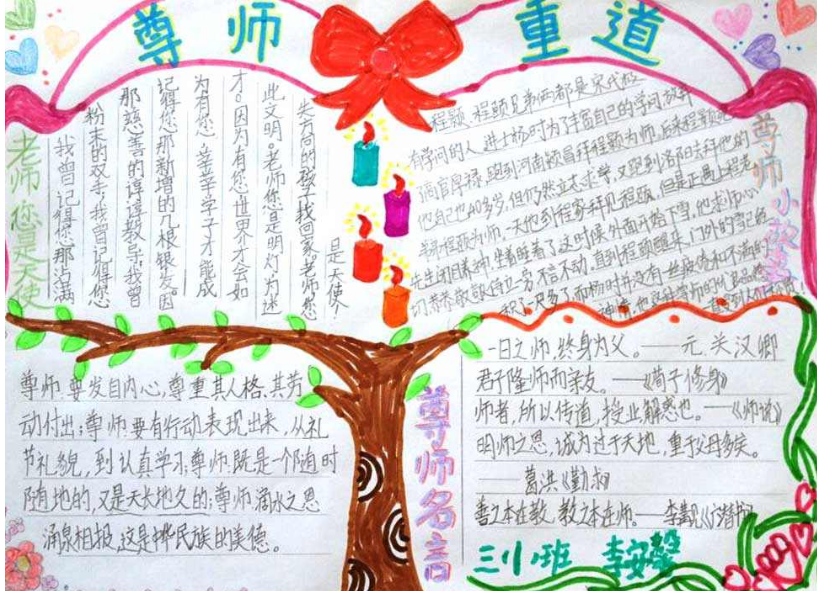 尊师重道
老师,您是天使
我曾记得您那沾满
粉末的双手,我曾记得您
那慈善的谆谆教导,我曾
记得您那新增的几根银发。因
为有您,莘莘学子才能成
才。因为有您,世界才会如
此文明。老师您是明灯,为迷
失方向的孩子找回家。老师您
是天使!
尊师小故事
程颢、程颐兄弟俩都是宋代极
有学问的人。进士杨时为了丰富自己的学问,放弃
高官厚禄,跑到河南颍昌拜程颢为师,后来程颢死,
他自己也40多岁,但仍然立志求学,又跑到洛阳去拜他的
弟弟程颐为师,一天他到程家拜见程颐,但是正遇上程老
先生闭目养神,坐着睡着了。这时候,外面开始下雪,他求师心
切,恭恭敬敬侍立一旁,不言不动,直到程颐醒来,门外的雪已经
积了一尺多了,而杨时并没有一丝疲倦和不满的
神情。
尊师,要发自内心,尊重其人格、其劳
动付出;尊师,要有行动表现出来,从礼
节礼貌,到认真学习;尊师,既是一个随时
随地的,又是天长地久的;尊师,滴水之恩
涌泉相报,这是中华民族的美德。
尊师名言
一日之师,终身为父。——元.关汉卿
君子隆师而亲友。——《荀子·修身》
师者,所以传道,授业,解惑也。——《师说》
明师之恩,诚为过于天地,重于父母多矣。
——葛洪《勤求》
善之本在教,教之本在师。——李觏《广潜书》
三小班 李安馨